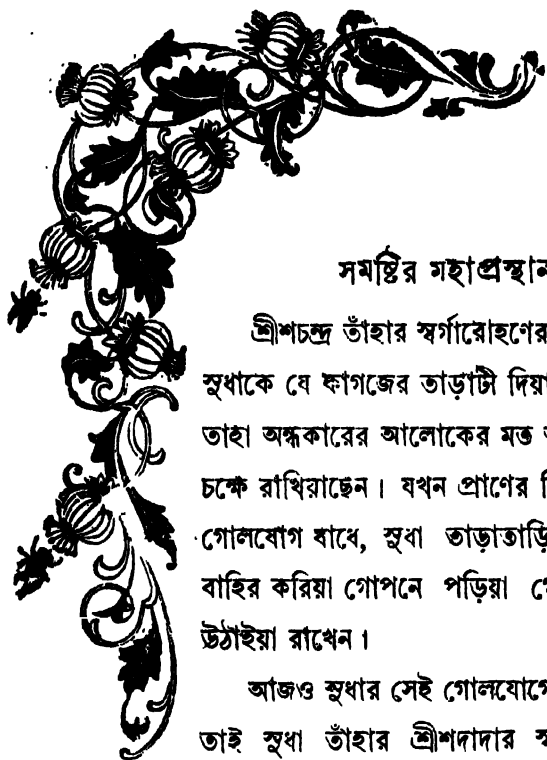 সমষ্টির মহাপ্রস্থান
শ্রীশচন্দ্র তাঁহার স্বর্গারোহণের
সুধাকে যে কাগজের তাড়াটী দিয়া
তাহা অন্ধকারের আলোকের মত
চক্ষে রাখিয়াছেন। যখন প্রাণের
গোলযোগ বাধে, সুধা তাড়াতাড়ি
বাহির করিয়া গোপনে পড়িয়া
উঠাইয়া রাখেন।
আজও সুধার সেই গোলযোগে
তাই সুধা তাঁহার শ্রীশদাদার